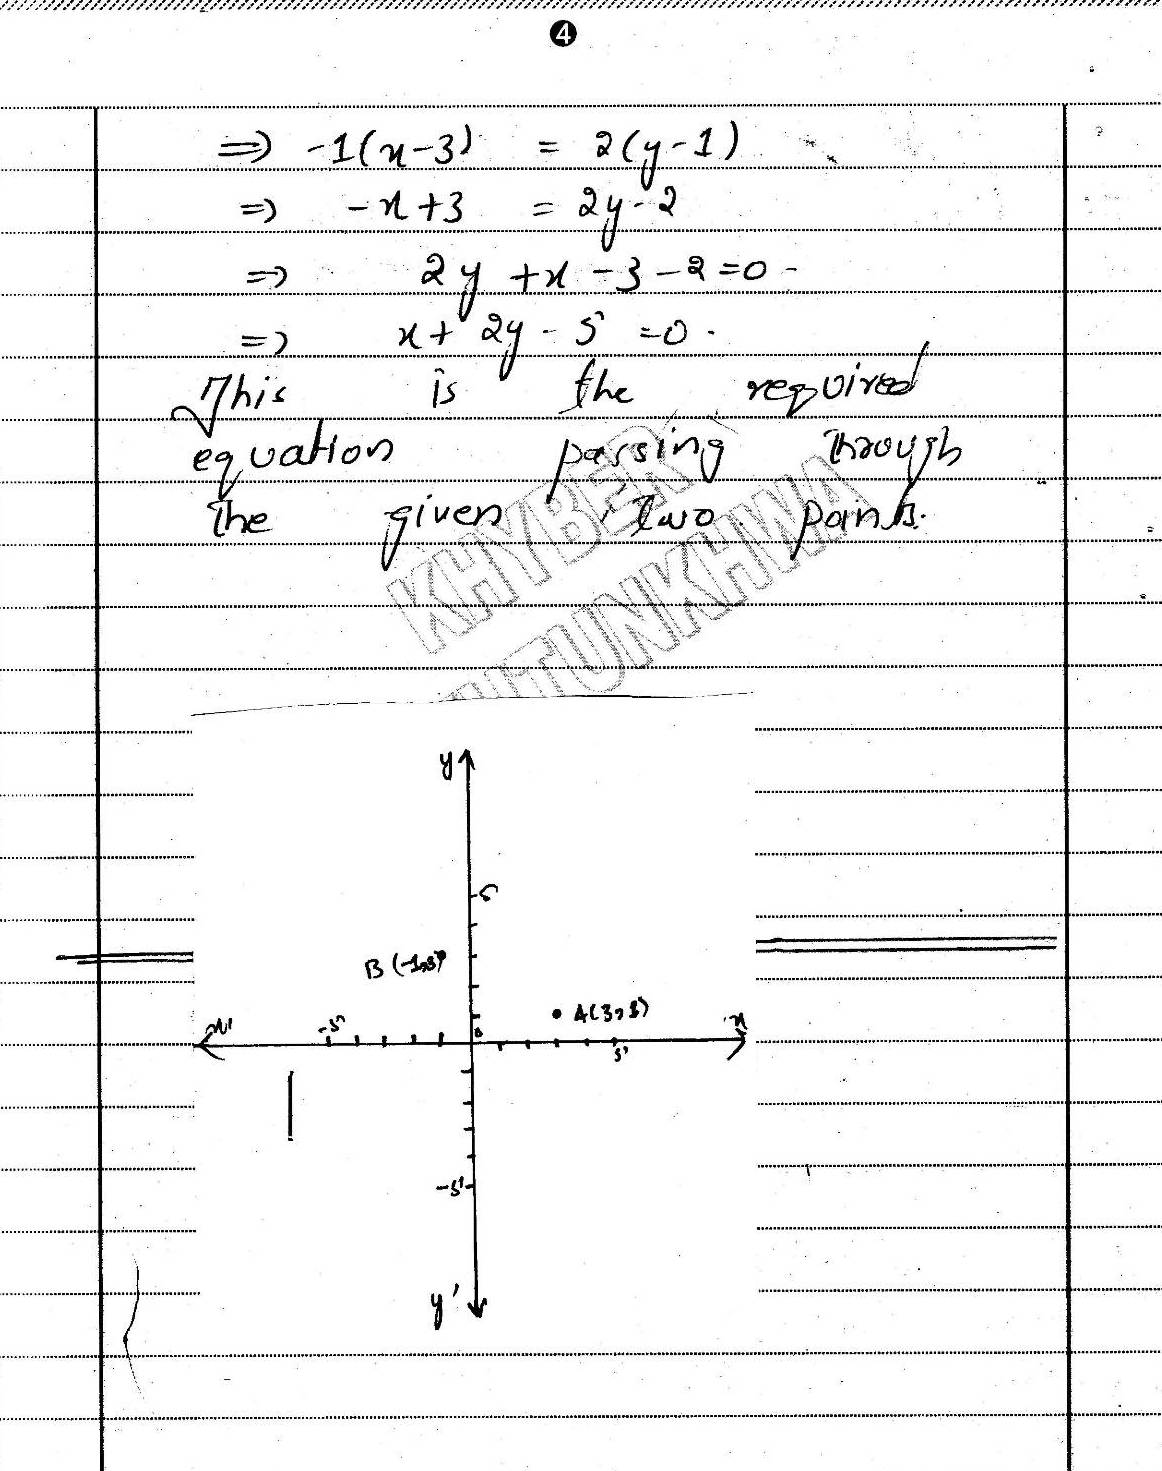 4
⇒ -1(x-3) = 2(y-1)
⇒ -x+3 = 2y-2
⇒ 2y +x -3-2=0
⇒ x+ 2y - 5 =0.
This is the required
equation passing through
the given two points.
KHYBER
TUNKHWA
y
5
B (-1,3)
A(3,1)
x' -5 0 5 x
-5
y'